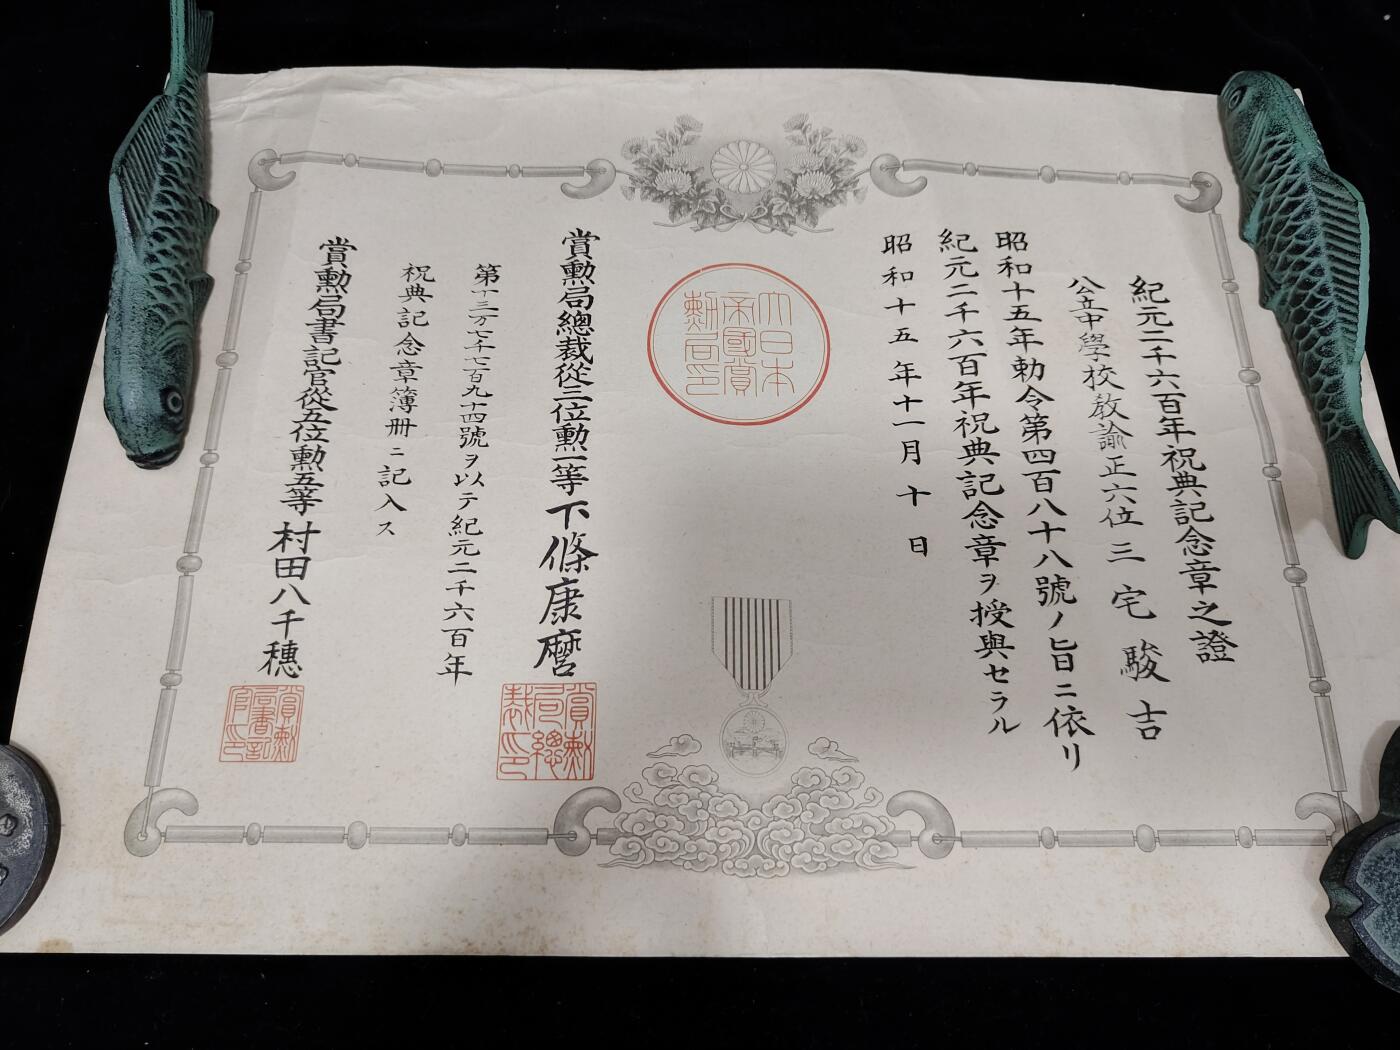 紀元二千六百年祝典記念章之證
公立中學校敎諭正六位三宅駿吉
昭和十五年勅令第四百八十八號ノ旨ニ依リ
紀元二千六百年祝典記念章ヲ授與セラル
昭和十五年十一月十日
大日本
帝國賞
勳局印
賞勳局總裁從三位勳一等下條康麿
賞勳
局總
裁印
第十三万七千七百九十四號ヲ以テ紀元二千六百年
祝典記念章簿冊ニ記入ス
賞勳局書記官從五位勳五等村田八千穗
賞勳
局書記
官印